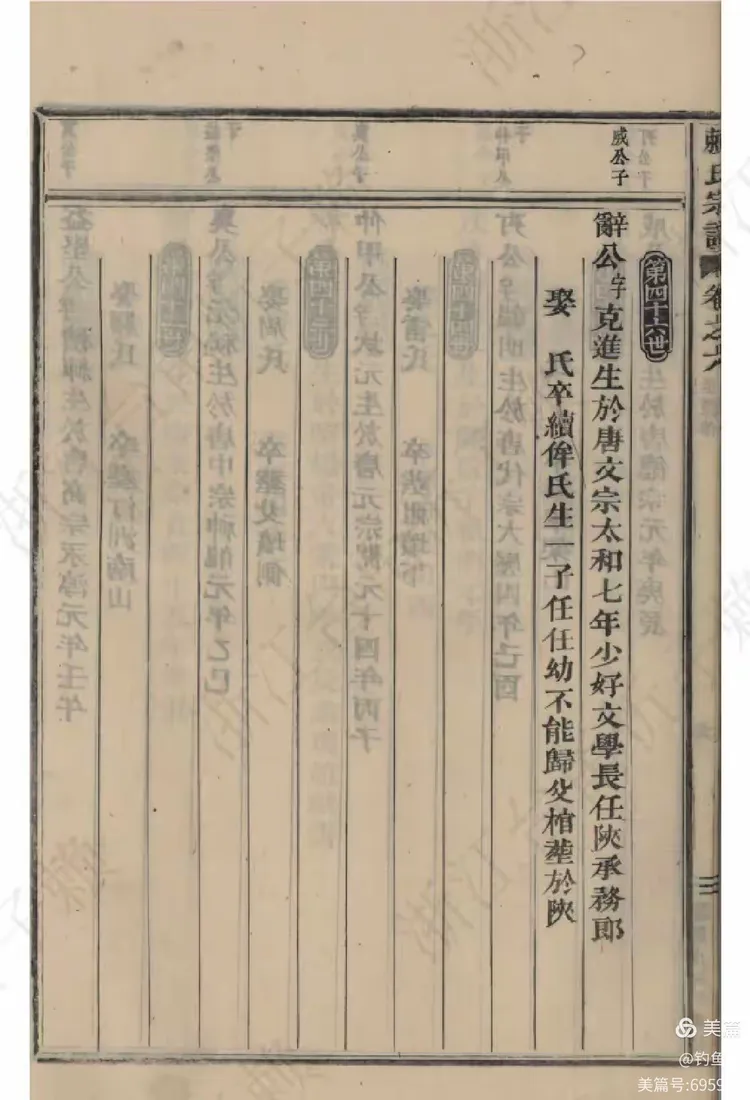 氏宗譜
卷之六
三
第四十六世
威公子
辭公字克進生於唐文宗太和七年少好文學長任陝承務郎
娶　氏卒續侔氏生一子任任幼不能歸父棺塟於陝
美篇
@钓鱼
美篇号:6959